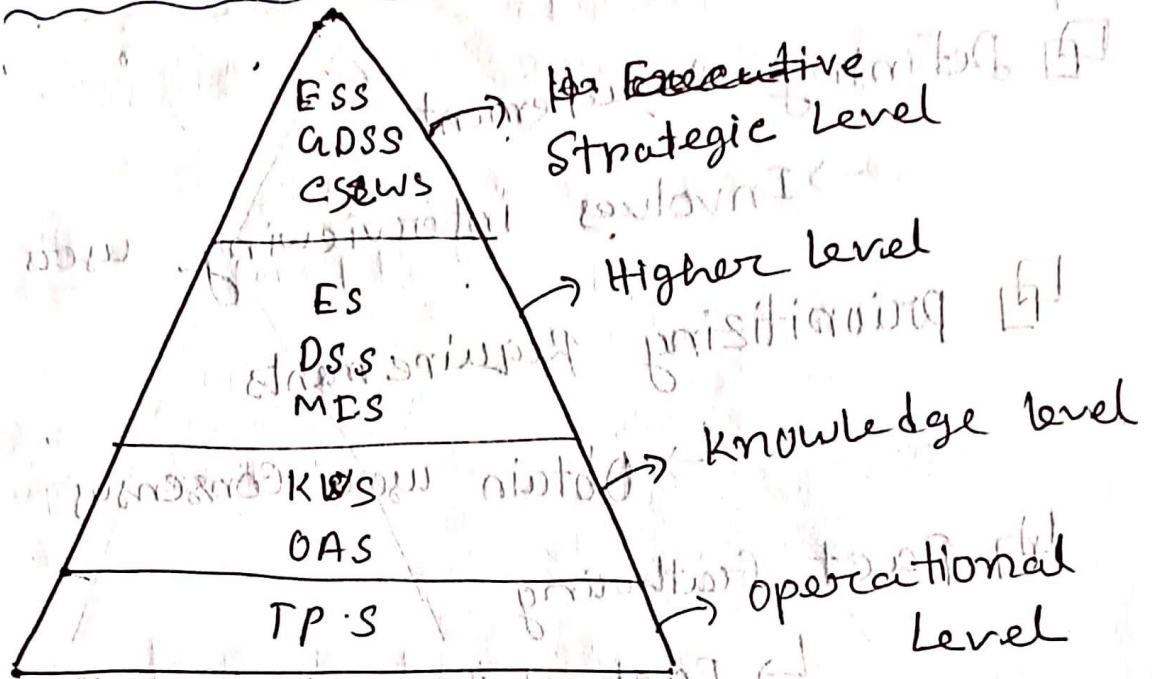 ESS
GDSS
CSCWS
Strategic Level
ES
DSS
MIS
Higher level
KWS
OAS
Knowledge level
TPS
operational
Level